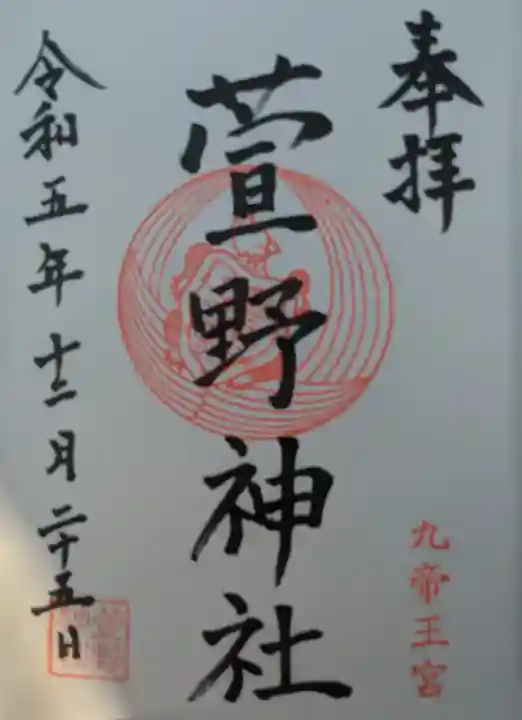 奉拝
九帝王宮
萱野神社
令和五年十二月二十五日